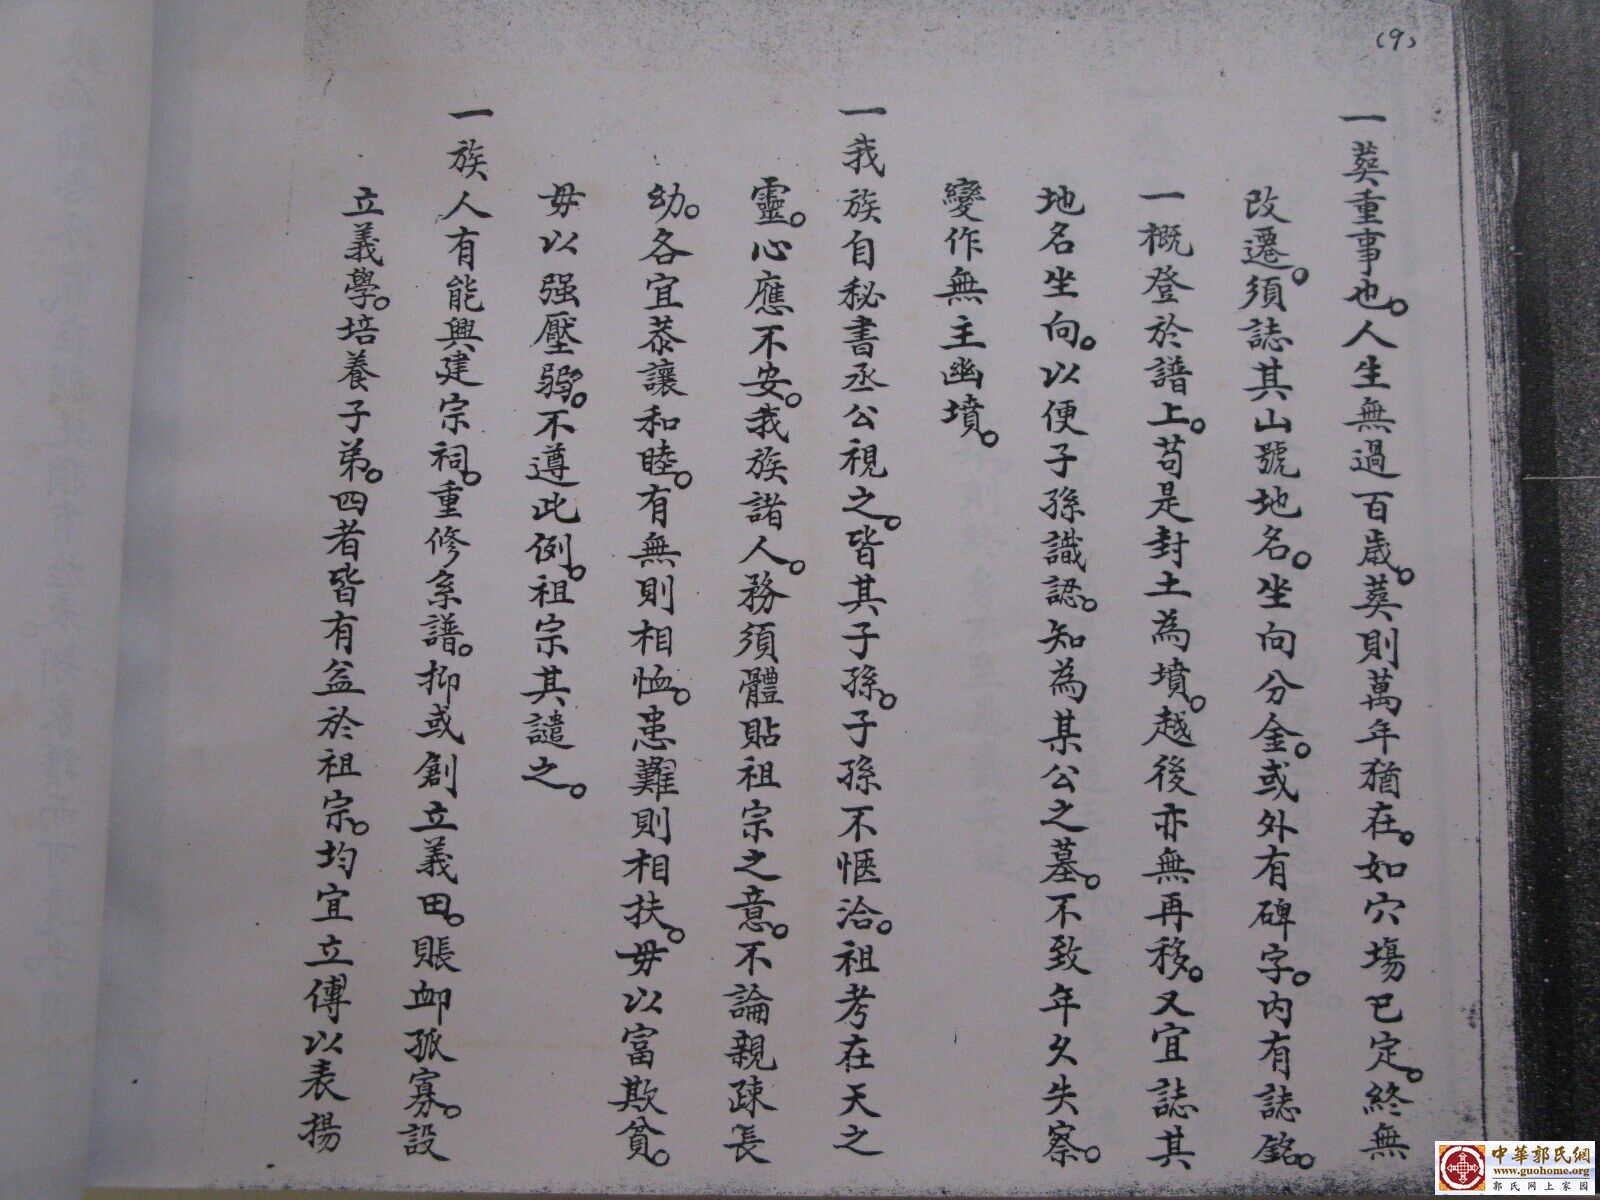 (9)
一葬重事也。人生無過百歲。葬則萬年猶在。如穴塲已定。終無
改遷。須誌其山號地名。坐向分金。或外有碑字。內有誌銘。
一概登於譜上。苟是封土為墳。越後亦無再移。又宜誌其
地名坐向。以便子孫識認。知為某公之墓。不致年久失察。
變作無主幽墳。
一我族自秘書丞公視之。皆其子孫。子孫不愜洽。祖考在天之
靈。心應不安。我族諸人。務須體貼祖宗之意。不論親疎長
幼。各宜恭讓和睦。有無則相恤。患難則相扶。毋以富欺貧。
毋以强壓弱。不遵此例。祖宗其譴之。
一族人有能興建宗祠。重修系譜。抑或創立義田。賬卹孤寡。設
立義學。培養子弟。四者皆有益於祖宗。均宜立傳以表揚
中華郭氏網
www.guohome.org
郭氏网上家园